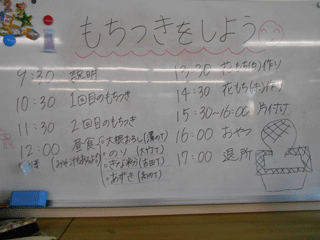 もちつきをしよう
9:30 説明
10:30 1回目のもちつき
11:30 2回目のもちつき
12:00 昼食
・大根おろし
・のり
・きなこ
・あずき
13:30
14:30 花もち 作り
15:30~16:00 片付け
16:00 おやつ
17:00 退所